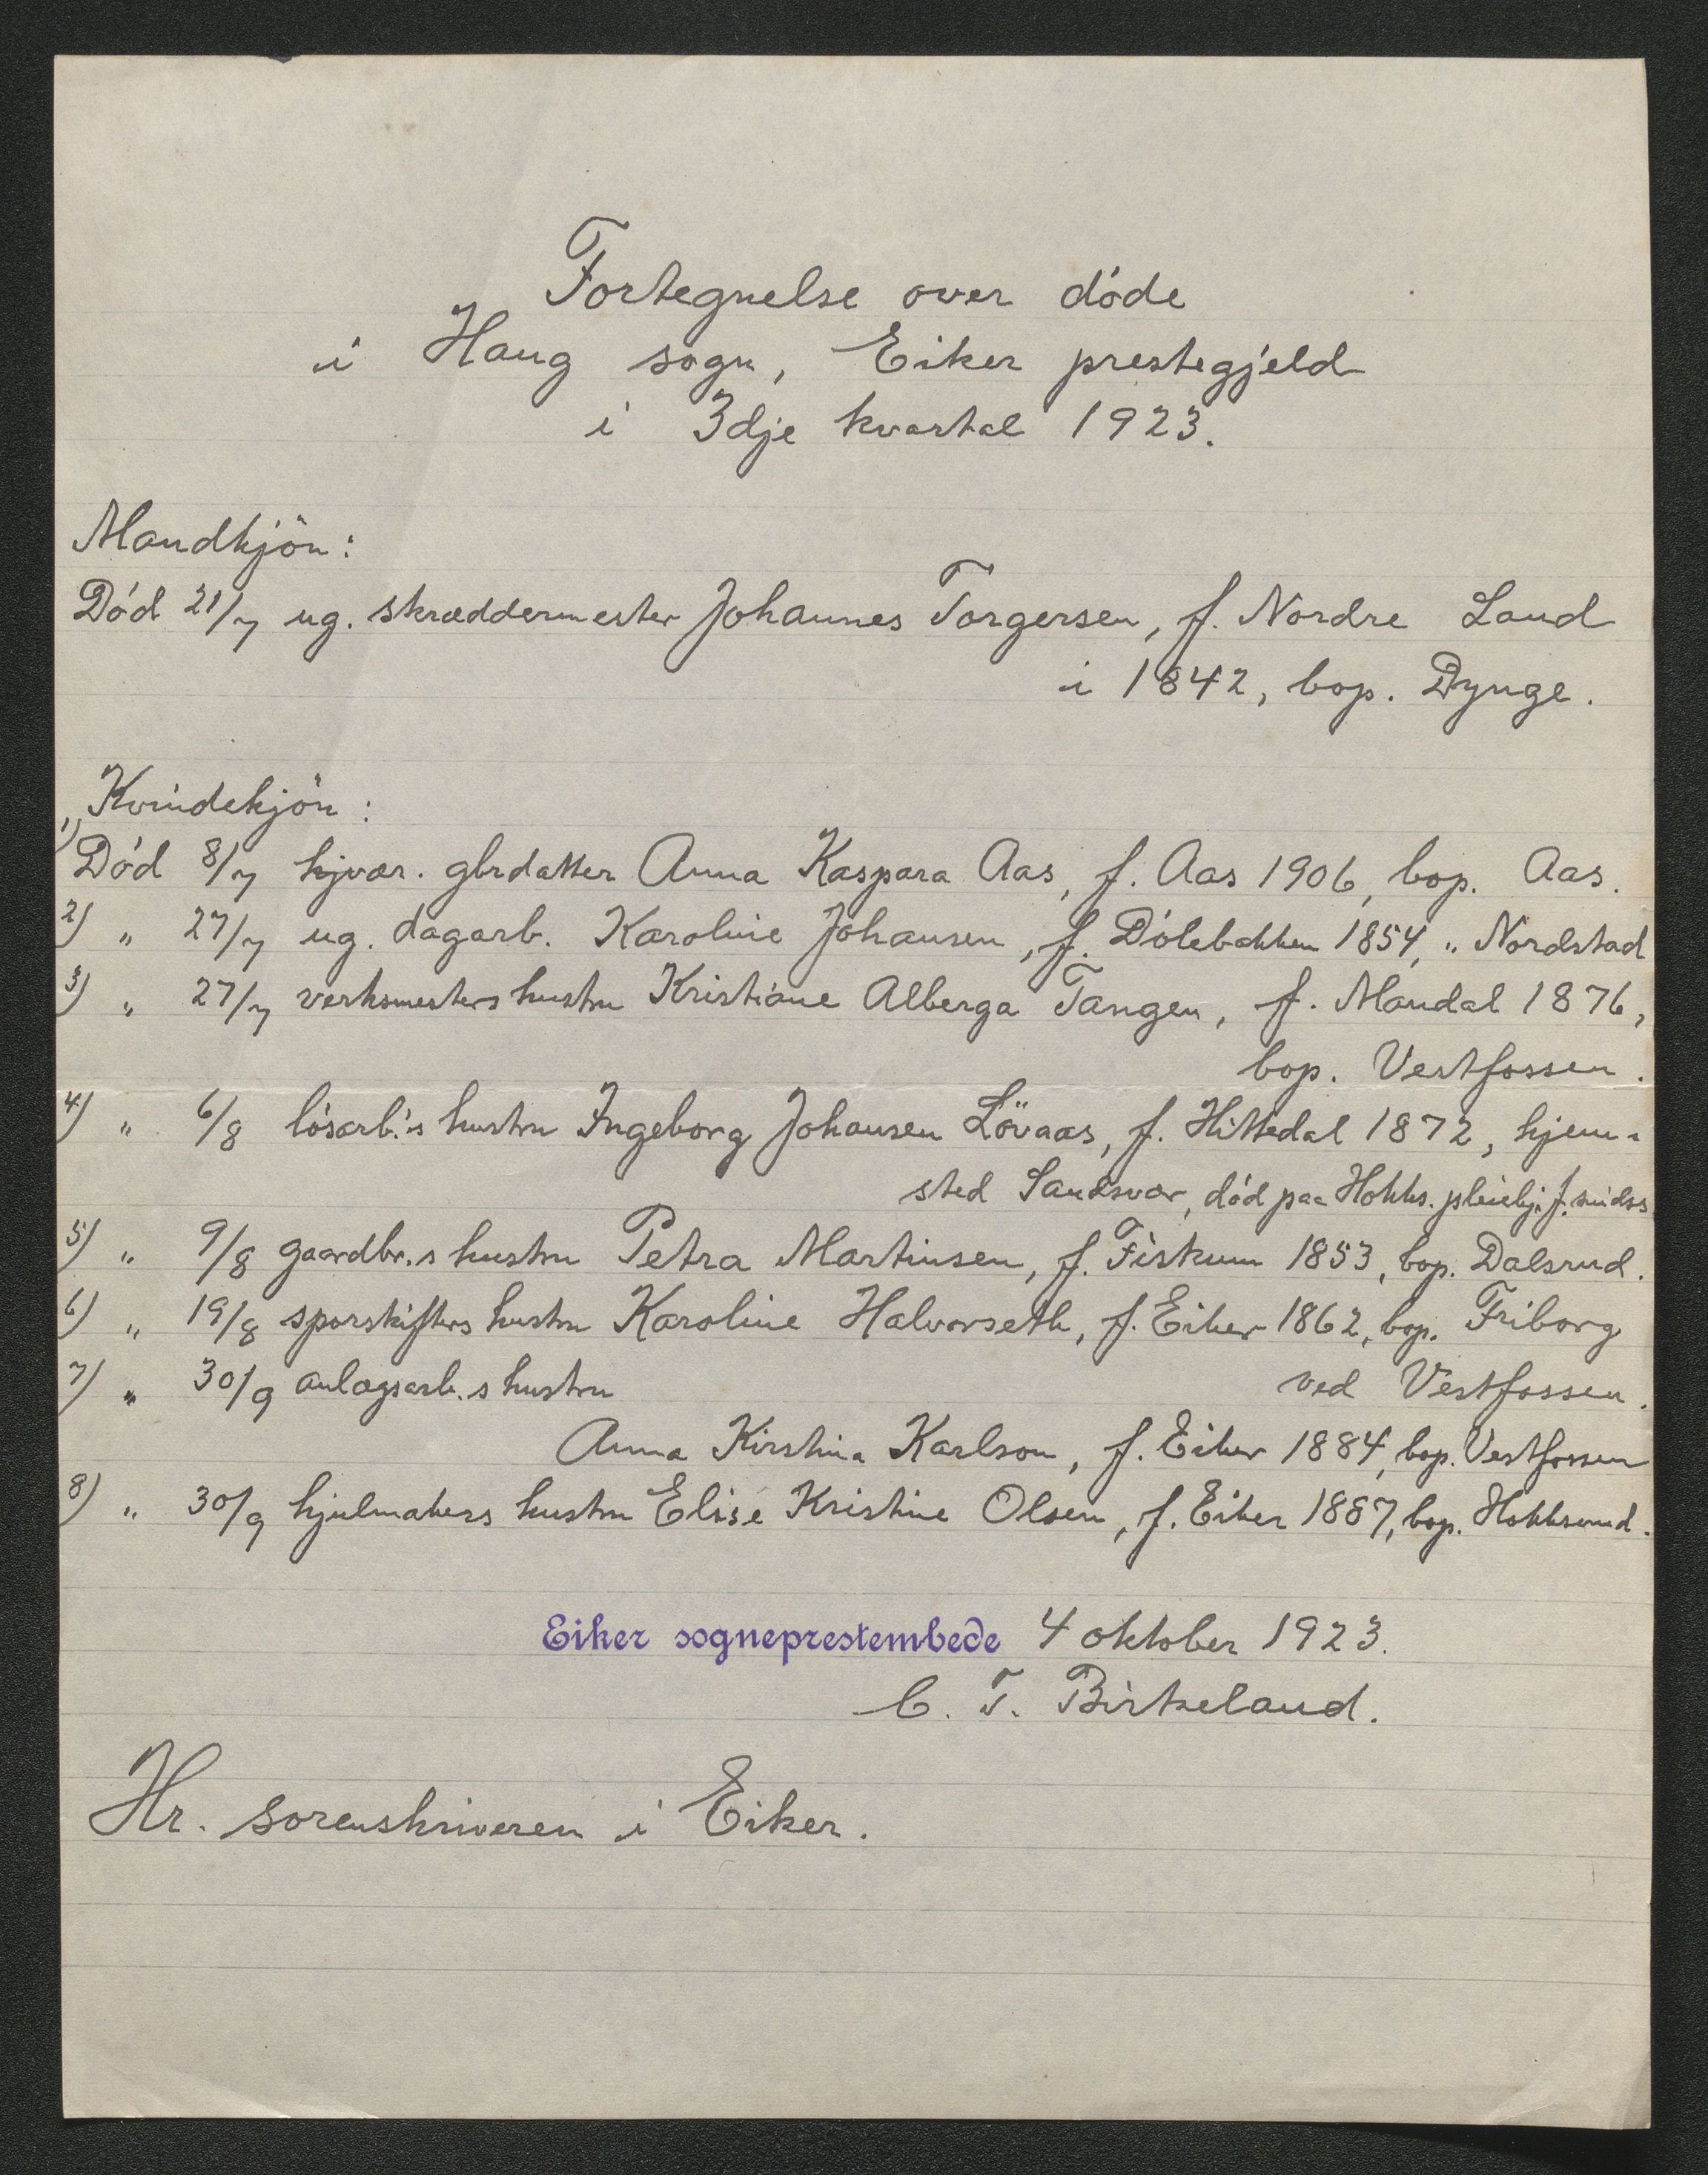 Fortegnelse over døde
i Haug sogn, Eiker prestegjeld
i 3dje kvartal 1923.
Mandkjön:
Död 21/7 ug. skræddermester Johannes Torgersen, f. Nordre Land
i 1842, bop. Dynge.
Kvindekjön:
1) Död 8/7 hjvær. gbrdatter Anna Kaspara Aas, f. Aas 1906, bop. Aas.
2) " 27/7 ug. dagarb. Karoline Johansen, f. Dölebakken 1854, " Nordstad
3) " 27/7 verksmesters hustru Kristiane Alberga Tangen, f. Mandal 1876,
bop. Vestfossen.
4) " 6/8 lösarb.'s hustru Ingeborg Johansen Lövaas, f. Hittedal 1872, hjem-
sted Sandsvær, död paa Hokks. pleiehj. f. sindss
5) " 9/8 gaardbr.s hustru Petra Martinsen, f. Fiskum 1853, bop. Dalsrud.
6) " 19/8 sporskifters hustru Karoline Halvorseth, f. Eiker 1862, bop. Friborg
ved Vestfossen.
7) " 30/9 anlægsarb.s hustru
Anna Kirstina Karlson, f. Eiker 1884, bop. Vestfossen
8) " 30/9 hjulmakers hustru Elise Kristine Olsen, f. Eiker 1887, bop. Hokksund.
Eiker sogneprestembede 4 oktober 1923.
C. T. Birkeland.
Hr. sorenskriveren i Eiker.